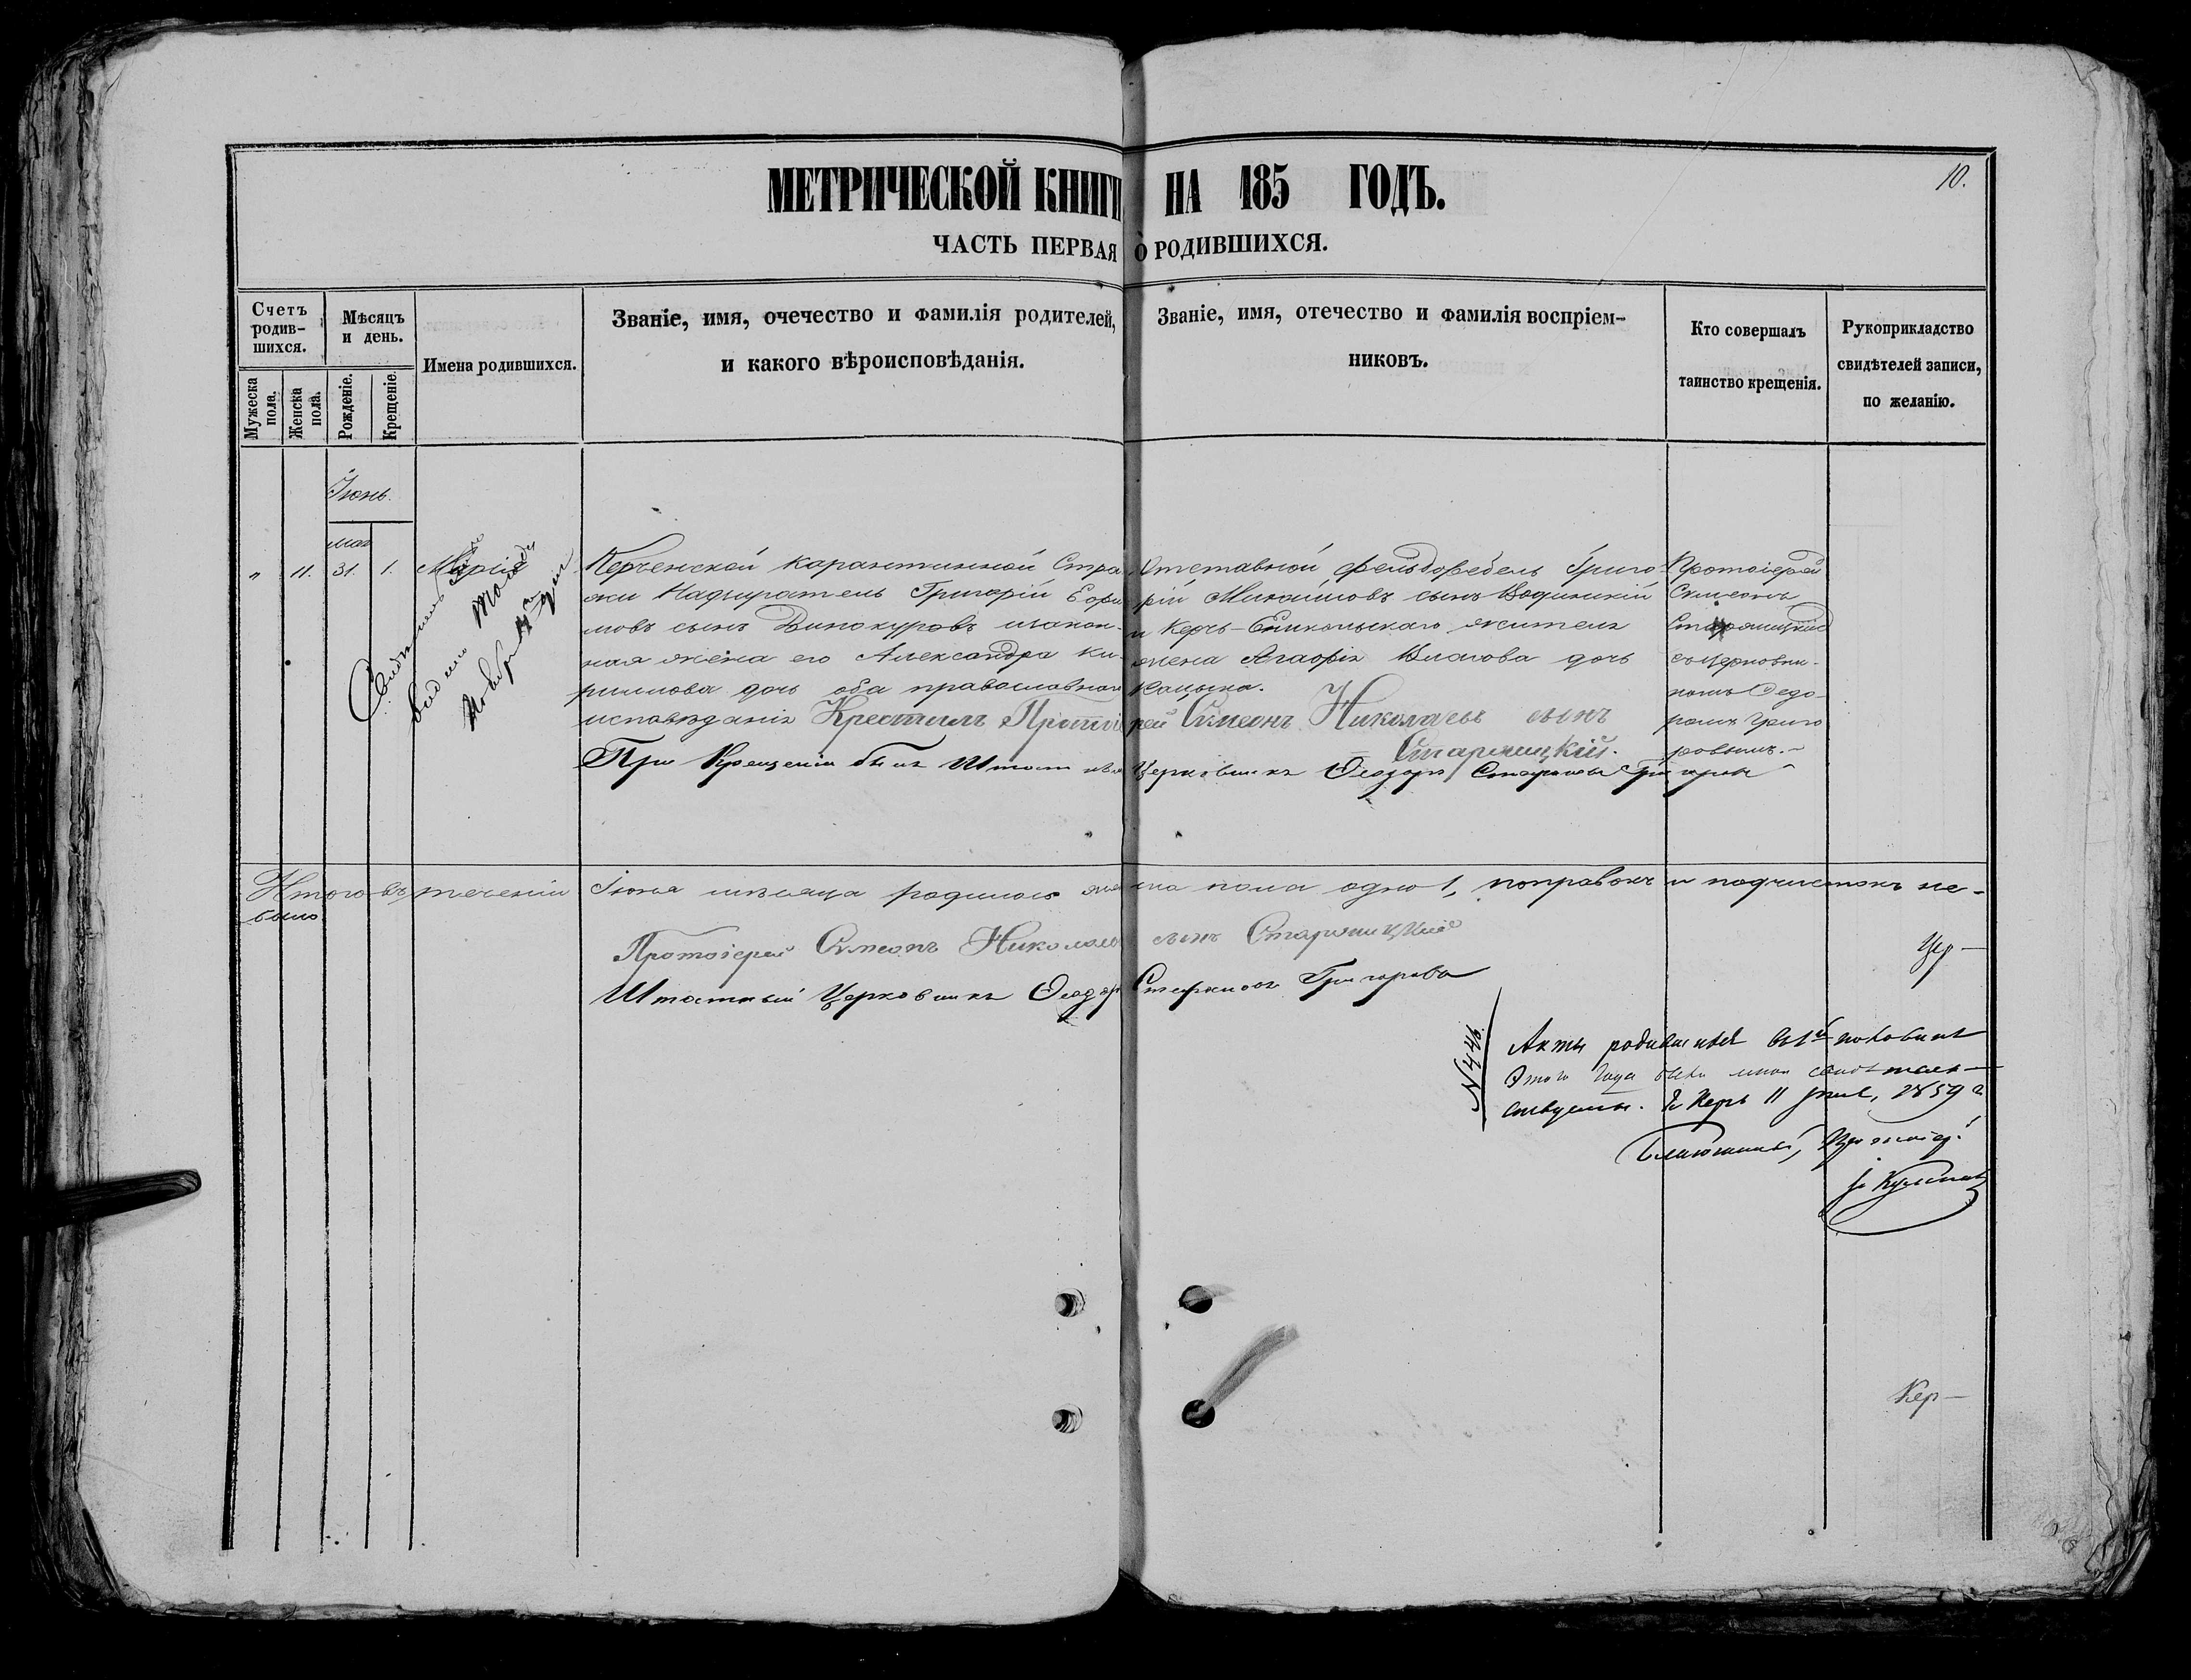 МЕТРИЧЕСКОЙ КНИГИ НА 185 ГОДЪ.
10.
ЧАСТЬ ПЕРВАЯ О РОДИВШИХСЯ.
Счетъ родив-шихся.
Мужеска пола.
Женска пола.
Мѣсяцъ и день.
Рожденіе.
Крещеніе.
Имена родившихся.
Званіе, имя, очечество и фамилія родителей,
и какого вѣроисповѣданія.
Званіе, имя, отечество и фамилія воспріем-
никовъ.
Кто совершалъ
таинство крещенія.
Рукоприкладство
свидѣтелей записи,
по желанію.
Іюнь.
мая
" 11. 31. 1. Марія
Керченской карантинной Стра
жи Надзиратель Григорій
мовъ сынъ Винокуровъ и закон-
ная жена его Александра Ки-
риллова дочь оба православнаго
исповѣданія Крестилъ Протоіе
При Крещеніи былъ Штатный
Отставной фельдфебель Григо-
рій Михаиловъ сынъ
и Керчь-Еникольскаго жителя
жена Агафія Власова дочь
рей Симеонъ Николаевъ сынъ
Старицкій.
Церковникъ Ѳеодоръ Стефановъ Григоровъ
Протоіерей
Симеонъ
съ Церковни-
комъ Ѳедо-
ромъ Григо
ровымъ.
Итого въ теченіи Іюня мѣсяца родилось женска пола одно 1, поправокъ и подчистокъ не-
было
Протоіерей Симеонъ Николаевъ сынъ Старицкій
Штатный Церковникъ Ѳеодоръ Стефановъ Григоровъ
Цер-
№ 446.
Акты родившихся въ 1й половинѣ
Этого года были мною свидѣтель-
ствуемы. Керчь 11 1859 г
Благочинный, Протоіер.
Кер-